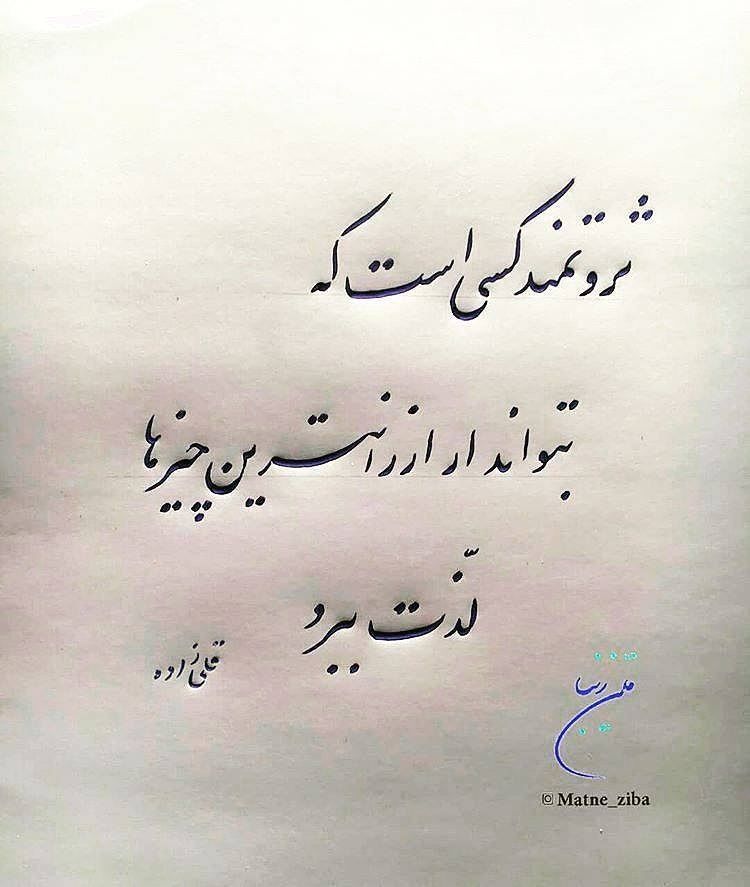 ثروتمند کسی است که
بتواند از ارزانترین چیزها
لذّت ببرد
قلی زاده
متن زیبا
Matne_ziba